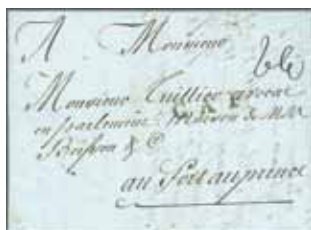 A Monsieur
Monsieur Tuillier avocat
en parlement Maison de MM
& Cie
au Port au prince